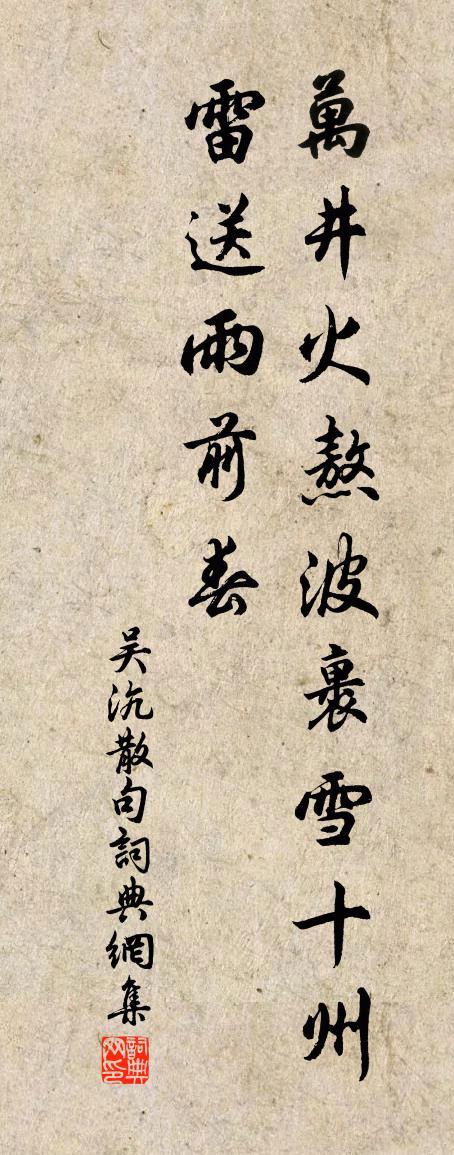 萬井火熬波裏雪十州
雷送雨前春
吴沆散句詞典網集
詞典網印